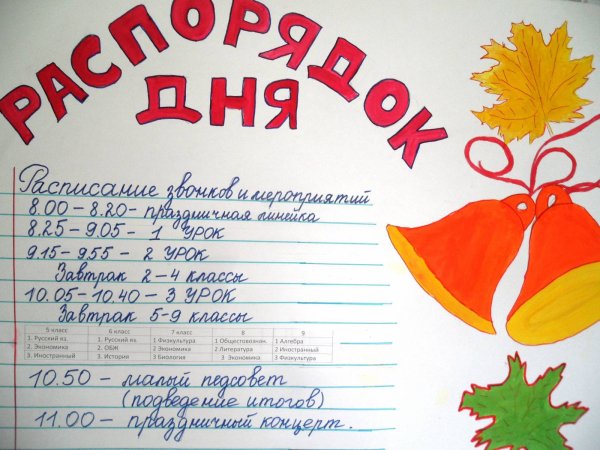 РАСПОРЯДОК
ДНЯ
Расписание звонков и мероприятий
8.00 – 8.20 – праздничная линейка
8.25 – 9.05 – 1 УРОК
9.15 – 9.55 – 2 УРОК
Завтрак 2 – 4 классы
10.05 – 10.40 – 3 УРОК
Завтрак 5-9 классы
5 класс 6 класс 7 класс 8 9
1. Русский яз. 1. Русский яз. 1 Физкультура 1 Обществознан. 1 Алгебра
2. Экономика 2. ОБЖ 2 Экономика 2 Литература 2 Иностранный
3. Иностранный 3. История 3 Биология 3 Экономика 3 Физкультура
10.50 – малый педсовет
(подведение итогов)
11.00 – праздничный концерт.